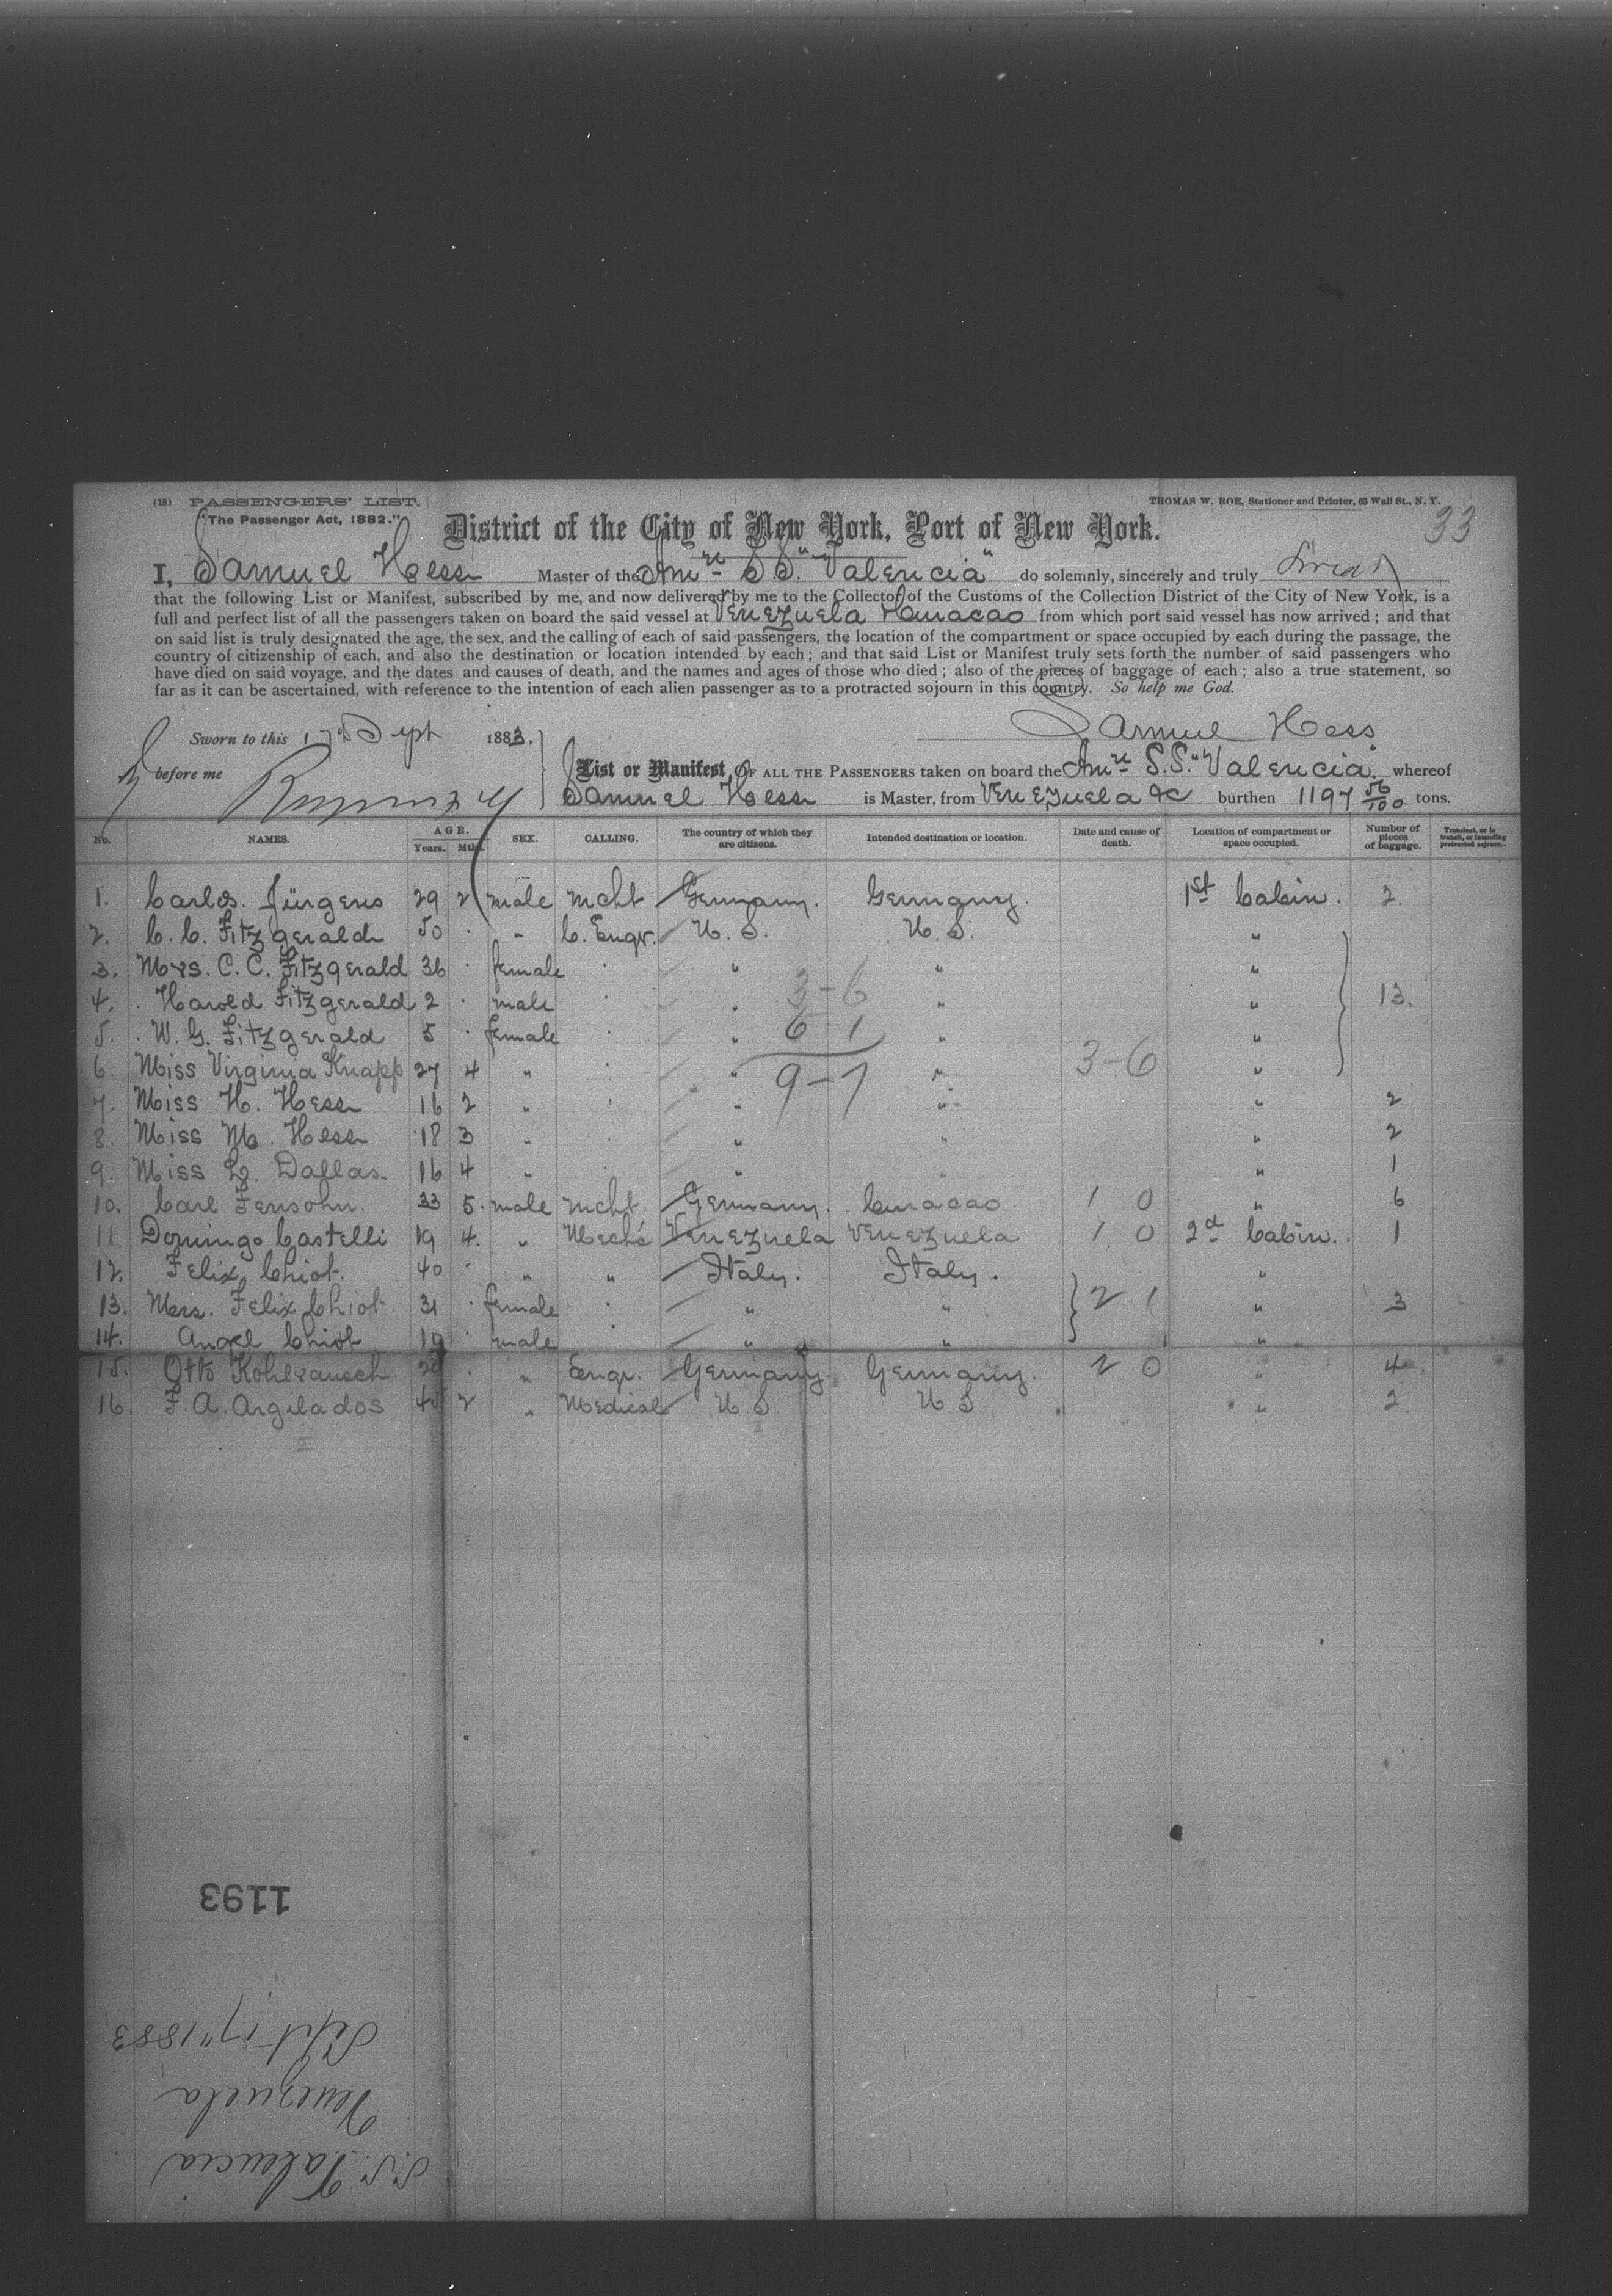 (18) PASSENGERS' LIST.
"The Passenger Act, 1882."
THOMAS W. ROE, Stationer and Printer, 63 Wall St., N. Y.
33
District of the City of New York, Port of New York.
I, Samuel Hess Master of the Amn SS. "Valencia" do solemnly, sincerely and truly Swear
that the following List or Manifest, subscribed by me, and now delivered by me to the Collector of the Customs of the Collection District of the City of New York, is a
full and perfect list of all the passengers taken on board the said vessel at Venezuela & Curacao from which port said vessel has now arrived; and that
on said list is truly designated the age, the sex, and the calling of each of said passengers, the location of the compartment or space occupied by each during the passage, the
country of citizenship of each, and also the destination or location intended by each; and that said List or Manifest truly sets forth the number of said passengers who
have died on said voyage, and the dates and causes of death, and the names and ages of those who died; also of the pieces of baggage of each; also a true statement, so
far as it can be ascertained, with reference to the intention of each alien passenger as to a protracted sojourn in this country. So help me God.
Sworn to this 17th Sept 1883.
Samuel Hess
before me
List or Manifest OF ALL THE PASSENGERS taken on board the Amn S.S. "Valencia" whereof
Samuel Hess is Master, from Venezuela &c burthen 1197 56/100 tons.
No. NAMES. AGE. Years. Mths. SEX. CALLING. The country of which they are citizens. Intended destination or location. Date and cause of death. Location of compartment or space occupied. Number of pieces of baggage. Transient, or in transit, or intending protracted sojourn.
1. Carlos. Jürgens 29 2 male mcht Germany. Germany. 1st Cabin. 2.
2. C. C. Fitzgerald 50 . " C. Engr. U. S. U. S. "
3. Mrs. C. C. Fitzgerald 36 . female . " " "
4. Harold Fitzgerald 2 . male . " 3-6 " " 13.
5. W. G. Fitzgerald 5 . female . " 6 1 " "
6. Miss Virginia Knapp 27 4 " . " 9-7 " 3-6 "
7. Miss H. Hess 16 2 " . " " " 2
8. Miss M. Hess 18 3 " . " " " 2
9. Miss L. Dallas. 16 4 " . " " " 1
10. Carl Fensohn. 33 5. male mcht. Germany. Curacao 1 0 " 6
11 Domingo Castelli 19 4. " Mech'c Venezuela Venezuela 1 0 2d Cabin. 1
12. Felix Chiot. 40 . " " Italy. Italy. "
13. Mrs. Felix Chiot 31 . female . " " 2 1 " 3
14. Angel Chiot 19 . male " " "
15. Otto Kohlrausch . " Engr. Germany. Germany. 2 0 " 4
16. F. A. Argilados 2 " Medical U. S U. S " 2
1193
S.S. Valencia
Venezuela
Sept 17" 1883